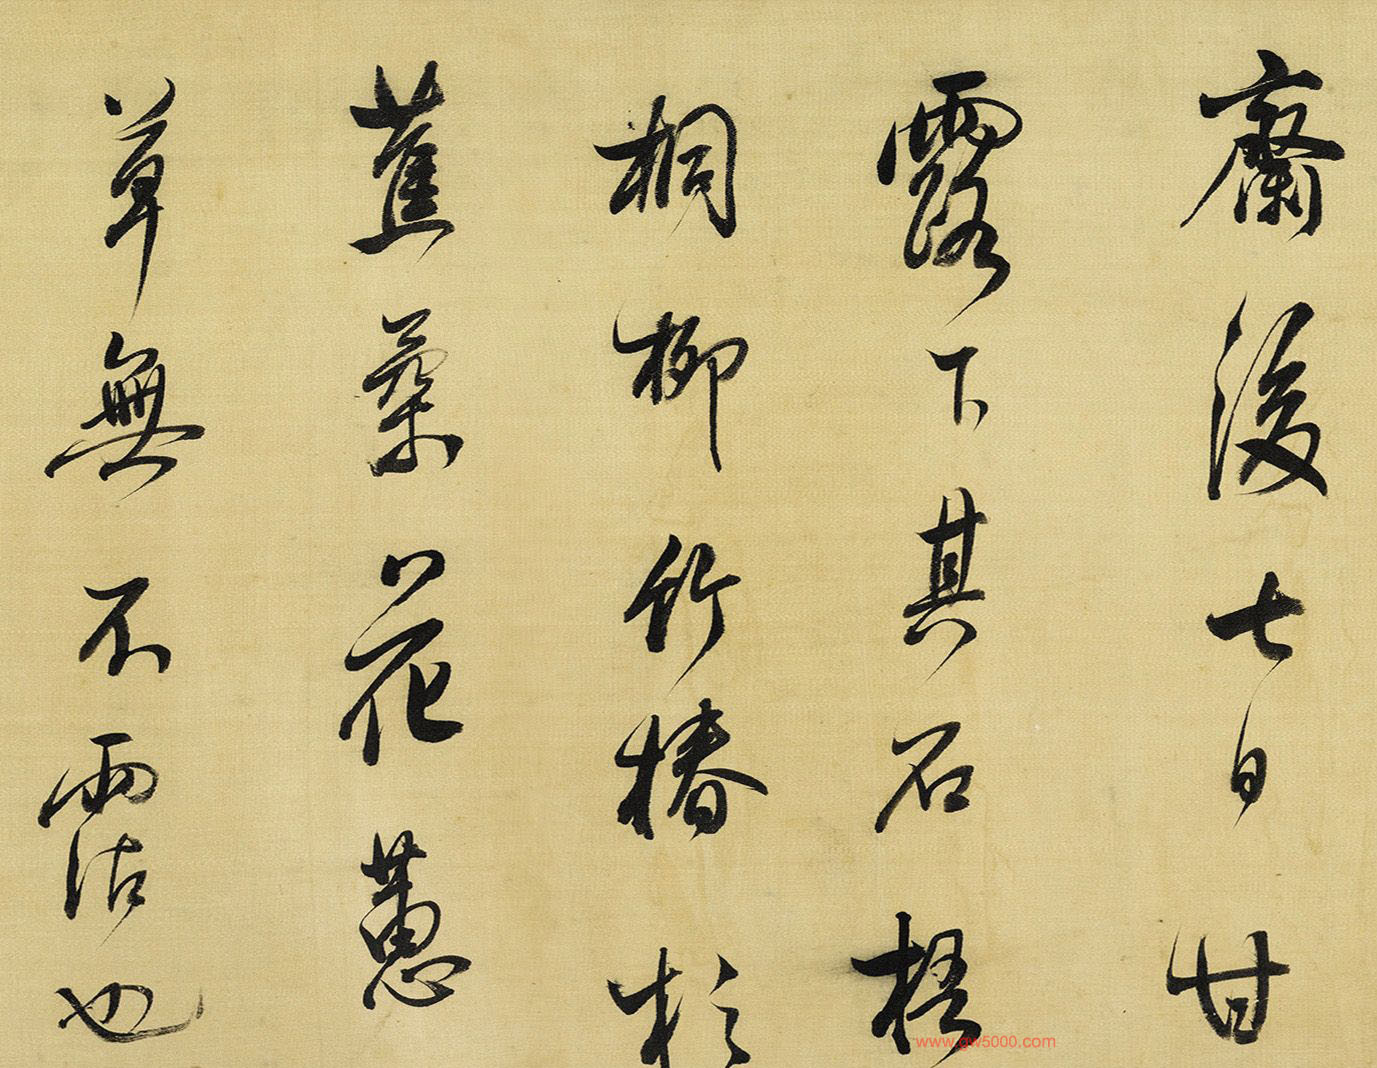 齋後七日甘
露下其石梧
桐柳竹椿杉
蕉桑花蕙
草無不霑也
www.gw5000.com